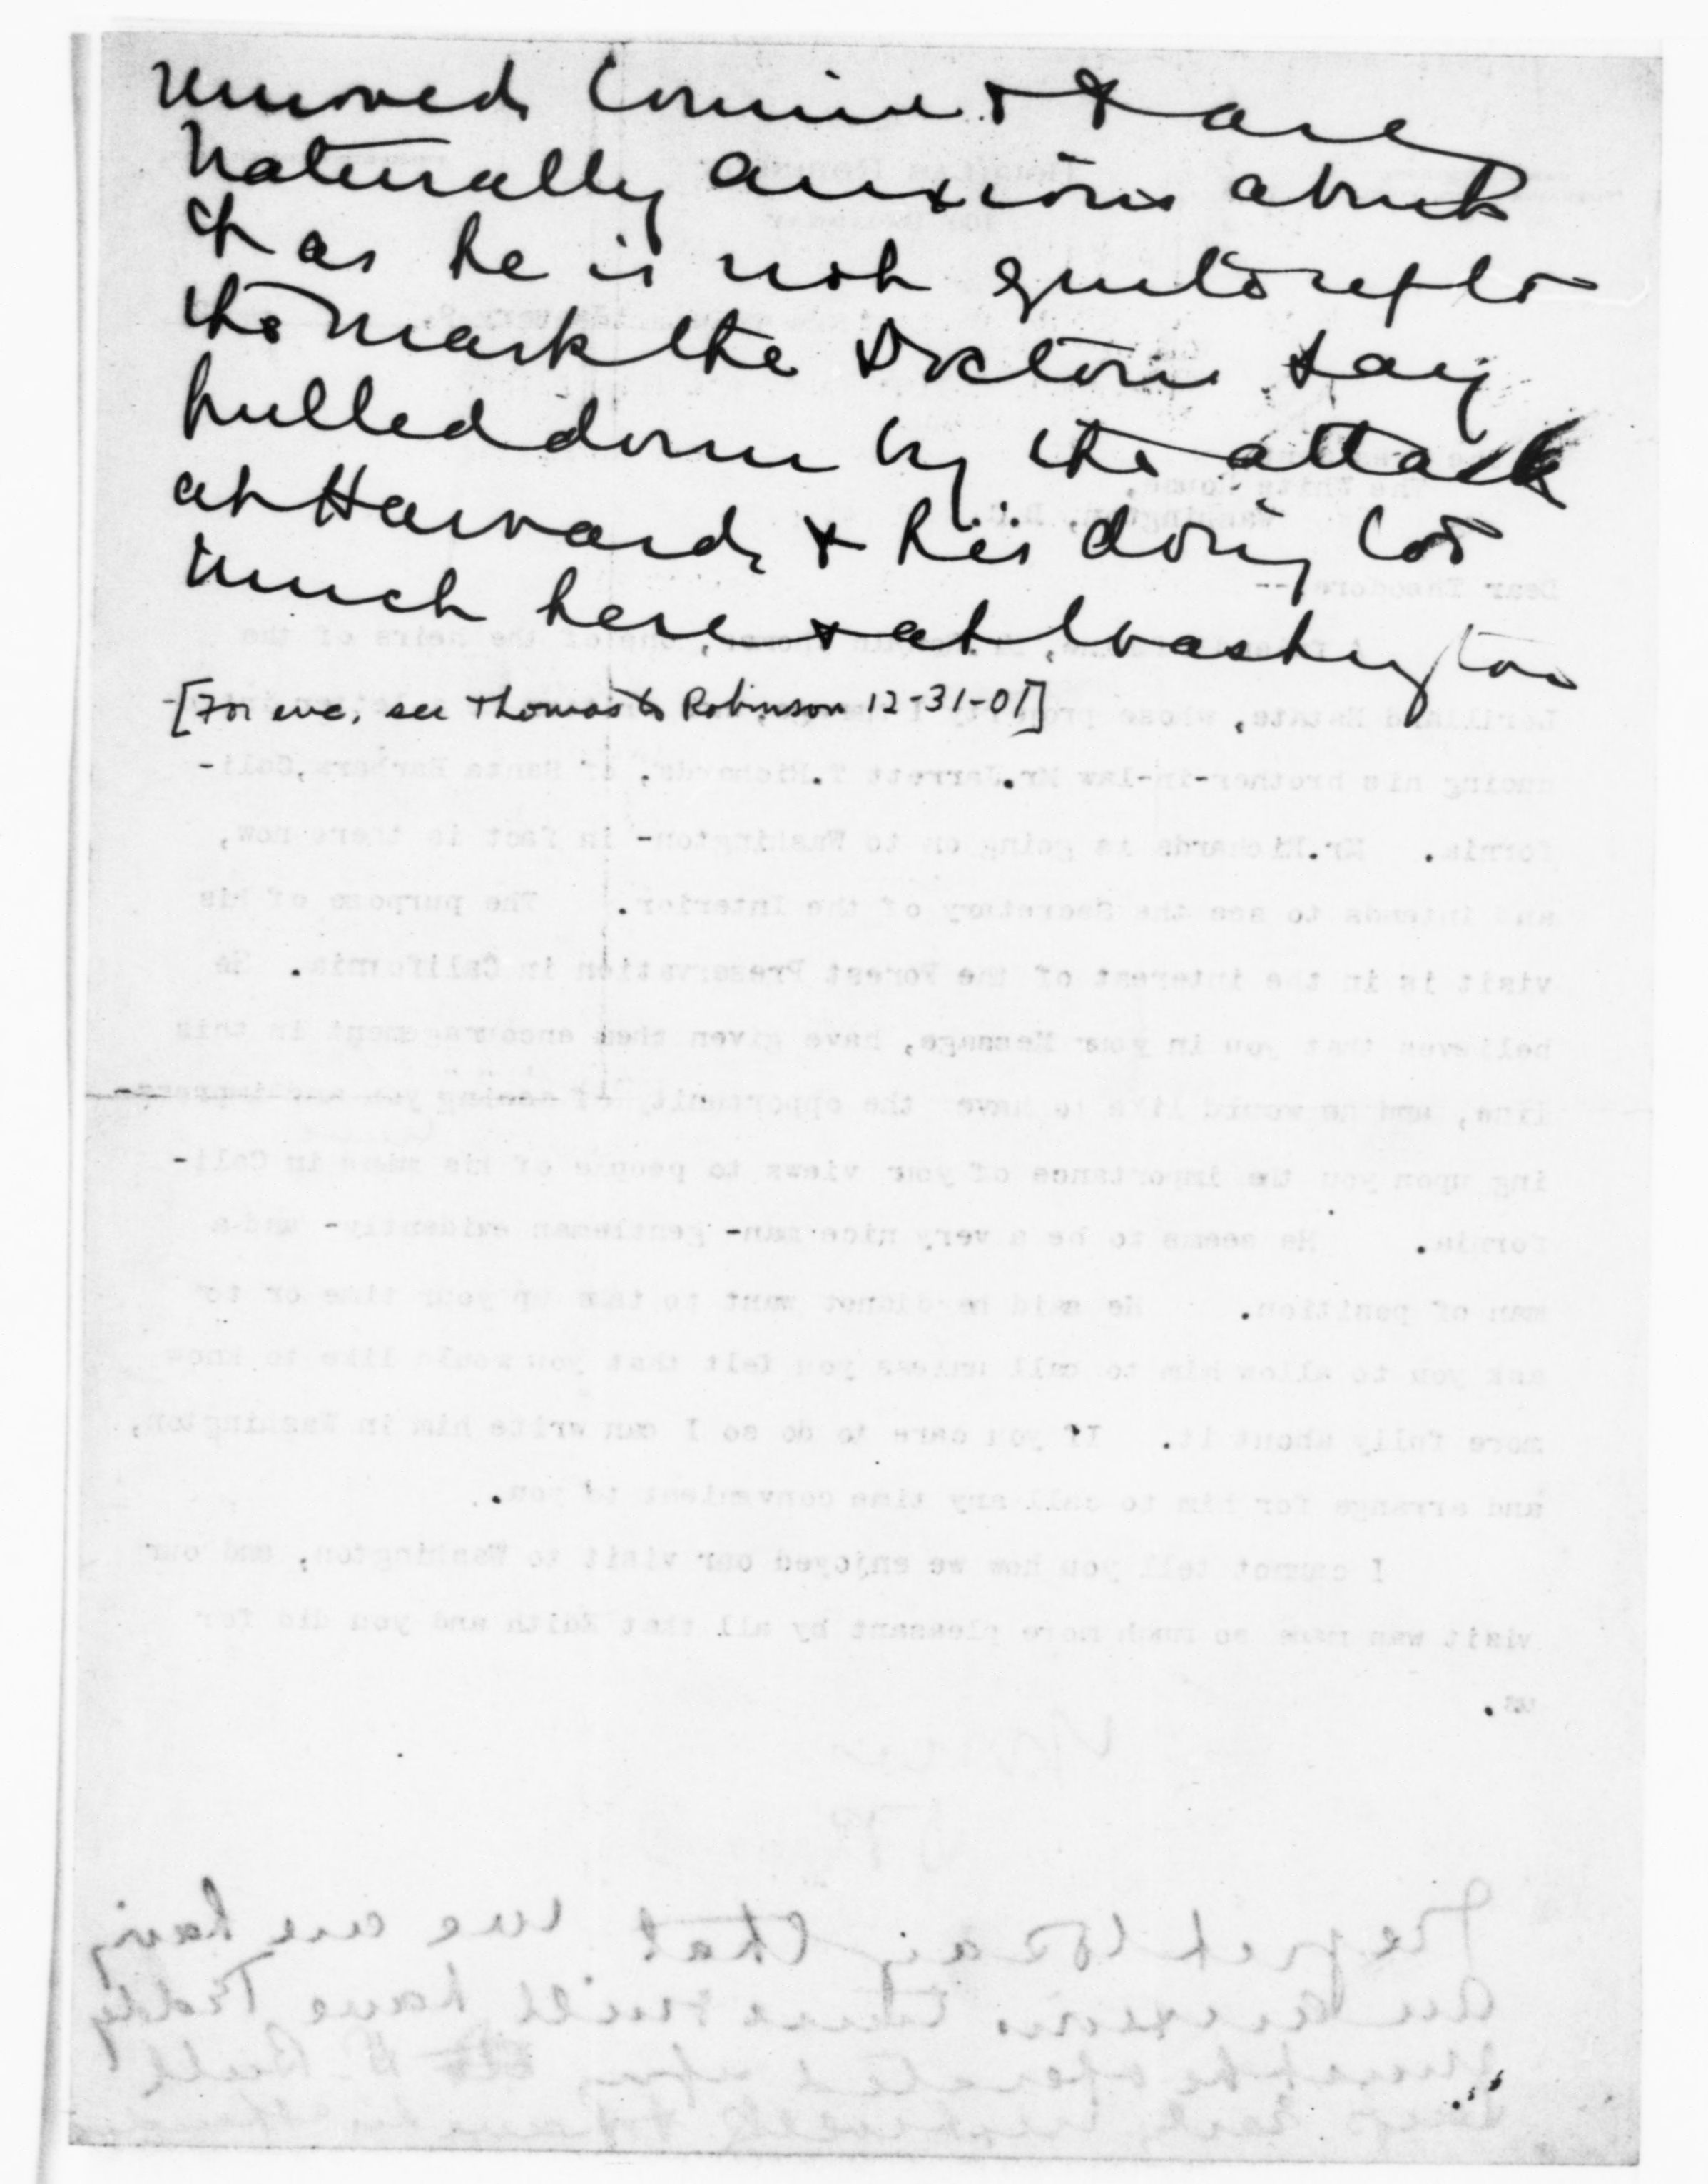 removed, Corinne & I are
naturally anxious about
it as he is not quite up to
the mark the Doctors say
pulled down by the attack
at Harvard, & his doing too
much here & at Washington
[For enc. see Thomas to Robinson 12-31-01]
The White House,
Washington, D.C.
Dear Theodore:--
Lorillard Estate, whose property I
ducing his brother-in-law Mr. Jarrett T. Richards, of Santa Barbara, Cali-
fornia. Mr. Richards is going on to Washington- in fact is there now,
and intends to see the Secretary of the Interior. The purpose of his
visit is in the interest of the Forest Preservation in California. He
believes that you in your Message, have given them encouragement in this
line, and he would like to have the opportunity of seeing you and impress-
ing upon you the importance of your views to people of his  in Cali-
fornia. He seems to be a very nice man- gentleman evidently- and a
man of position. He said he didnot want to take up your time or to
ask you to allow him to call unless you felt that you would like to know
more fully about it. If you care to do so I can write him in Washington,
and arrange for him to call any time convenient to you.
I cannot tell you how we enjoyed our visit to Washington, and our
visit was made so much more pleasant by all that Edith and you did for
us.
I regret to say that we are having
an anxious time & will have Teddy
must be operated upon, Dr. Bull